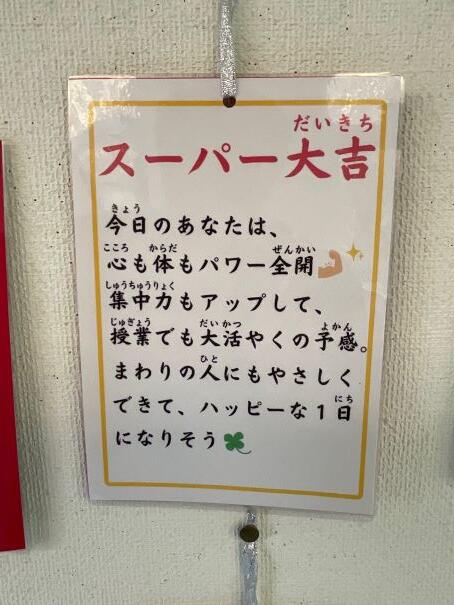 だいきち
スーパー大吉
きょう
今日のあなたは、
こころ からだ ぜんかい
心も体もパワー全開💪✨
しゅうちゅうりょく
集中力もアップして、
じゅぎょう だいかつ よかん
授業でも大活やくの予感。
ひと
まわりの人にもやさしく
にち
できて、ハッピーな1日
になりそう🍀